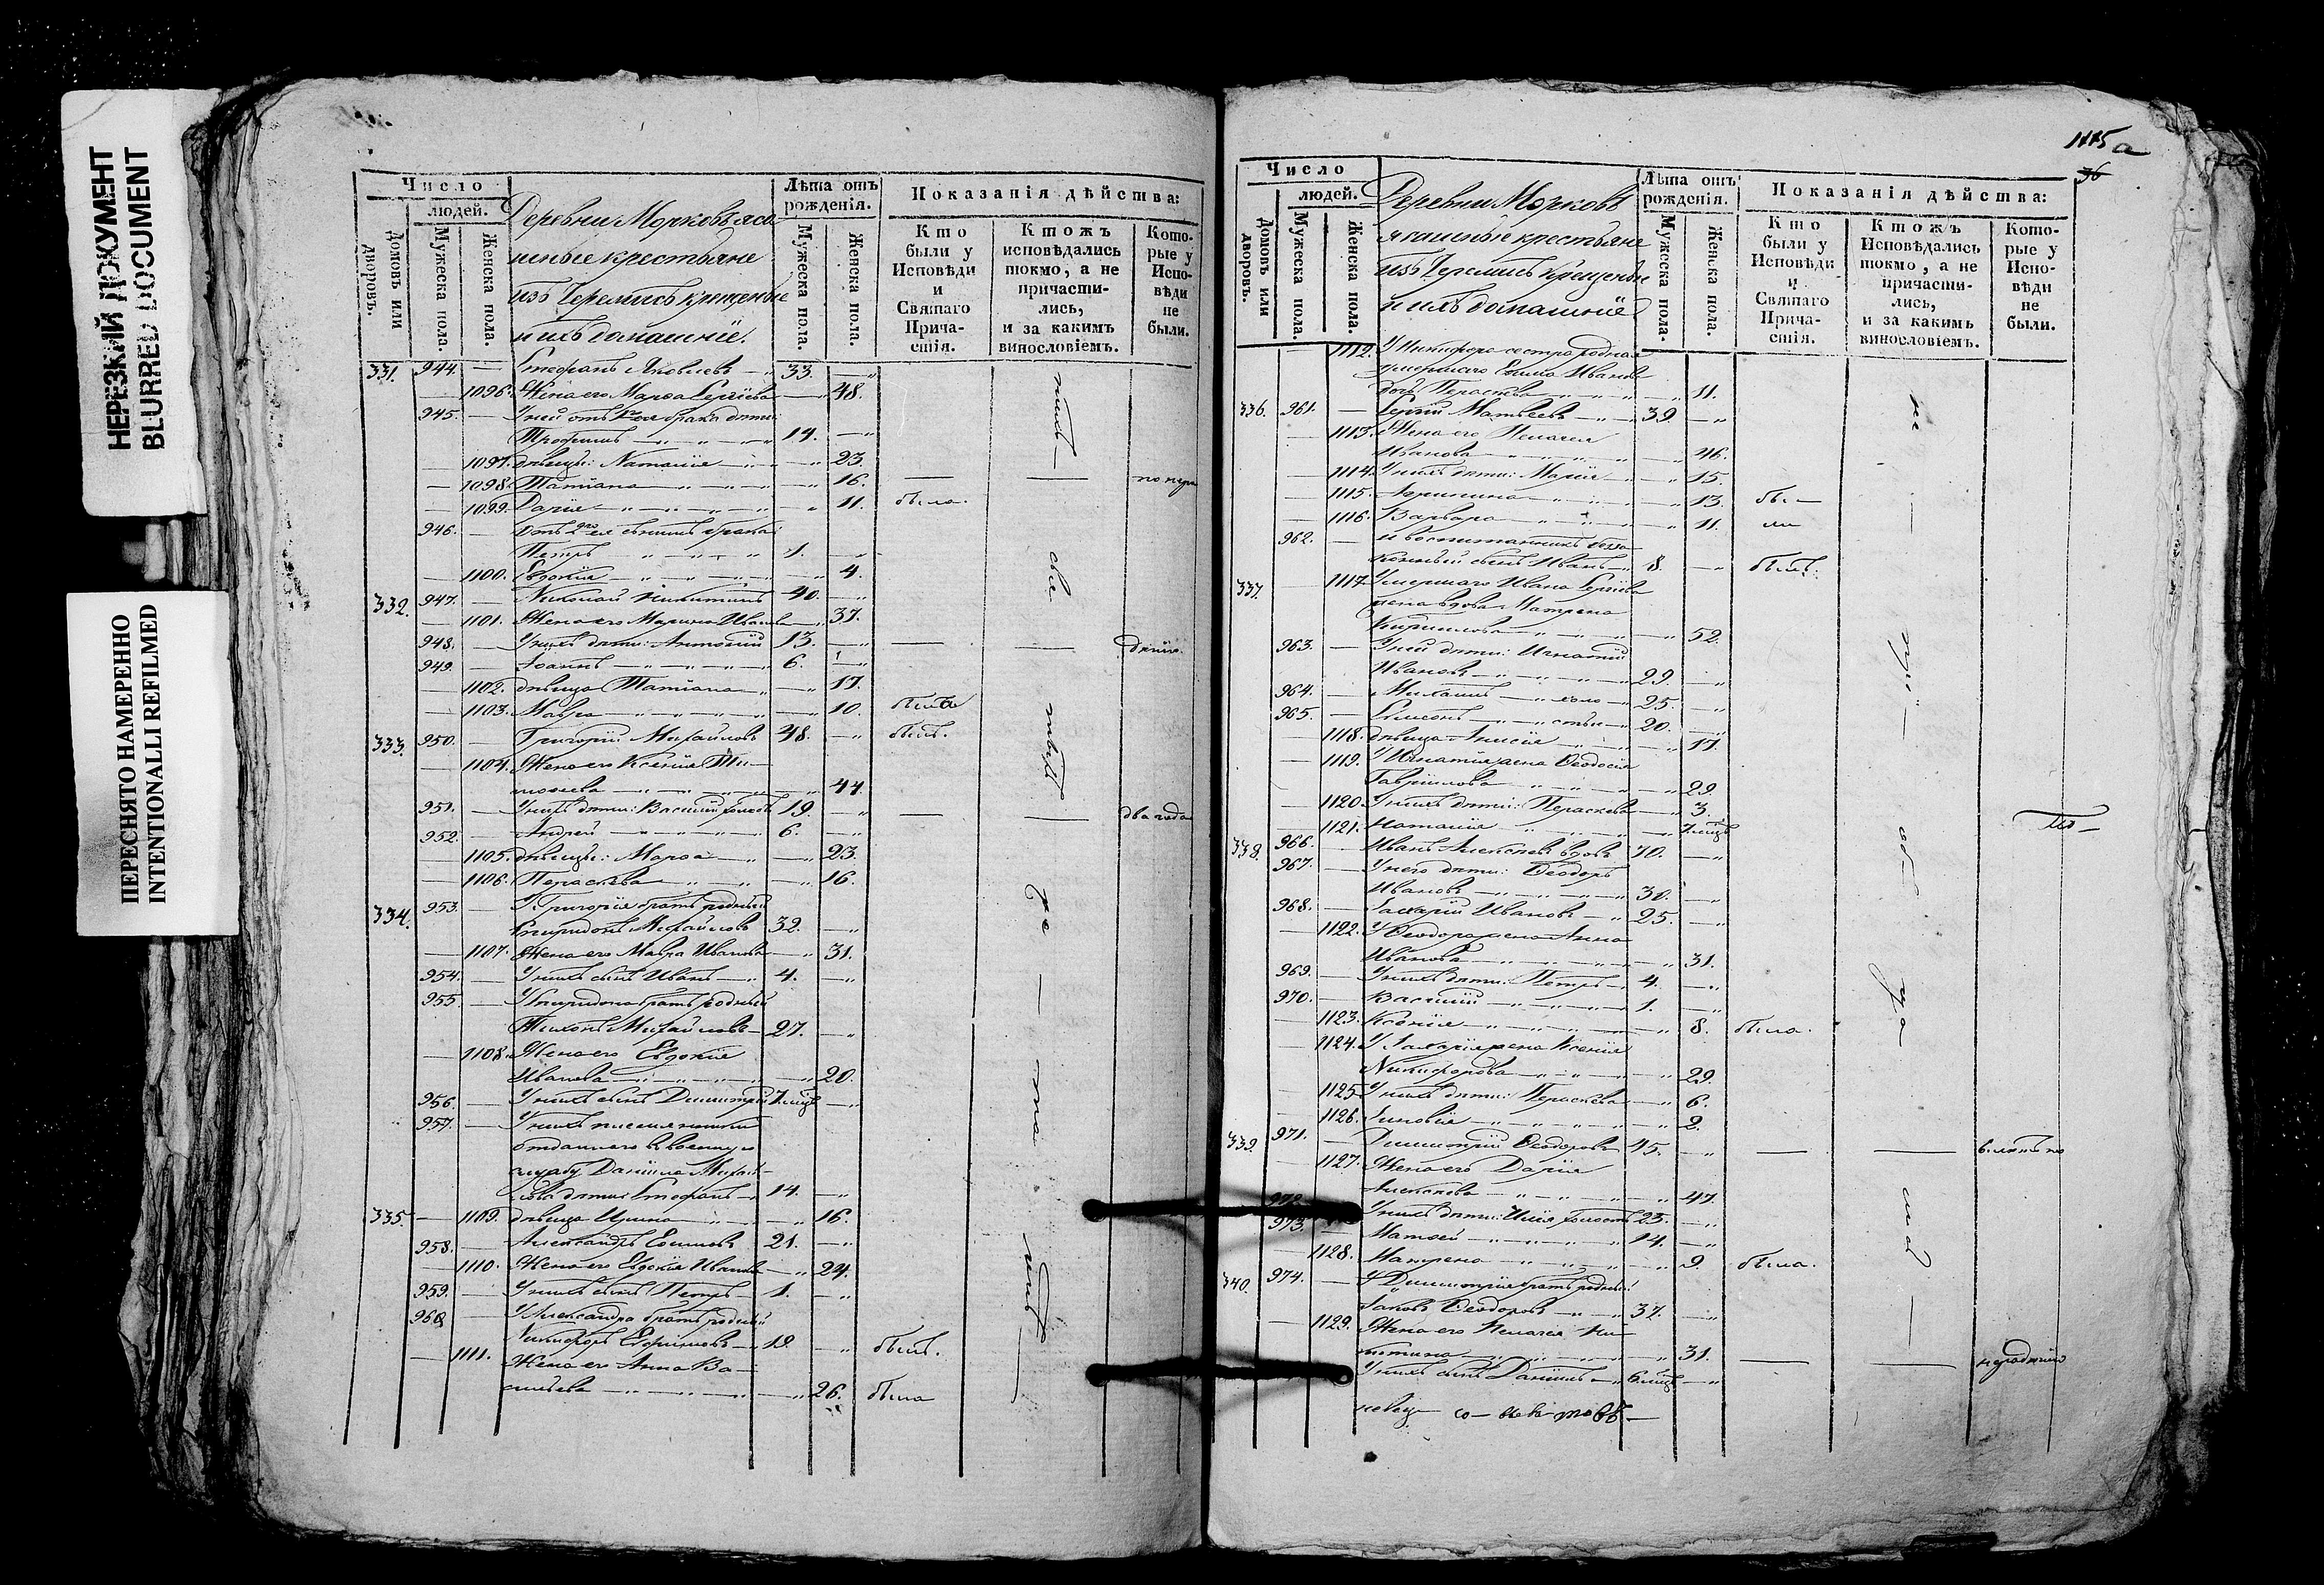 НЕРЕЗКИЙ ДОКУМЕНТ
BLURRED DOCUMENT
ПЕРЕСНЯТО НАМЕРЕННО
INTENTIONALLI REFILMED
Число
людей.
Домовъ или дворовъ.
Мужеска пола.
Женска пола.
Деревни Морковъ яса
шные крестьяне
изъ Черемисъ крещеные
и ихъ домашніе.
Лѣта отъ
рожденія.
Мужеска пола.
Женска пола.
Показанія дѣйства:
Кто
были у
Исповѣди
и
Святаго
Прича-
стія.
Ктожъ
исповѣдались
токмо, а не
причасти-
лись,
и за какимъ
винословіемъ.
Кото-
рые у
Испо-
вѣди
не
были.
331. 944. — Стефанъ Яковлевъ 33.
1096. Жена его Марѳа Сергіева 48.
945. — У ней отъ 1го брака дѣти
Трофимъ 14.
1097. дѣвицы: Наталія 23.
1098. Татіана 16.
1099. Дарія 11. была.
946. — Отъ 2го ея съ нимъ брака
Петръ 1.
1100. Евдокія 4.
332. 947. — Николай Никитинъ 40.
1101. Жена его Марина 37.
948. — У нихъ дѣти: Антоній 13.
949. — Іоаннъ 6.
1102. дѣвица Татіана 17.
1103. Мавра 10. была
333. 950. — Григорій Михайловъ 48. былъ.
1104. Жена его Ксенія Ти-
моѳеева 44
951. — У нихъ дѣти: Василій холостъ 19. два года
952. — Андрей 6.
1105. дѣвицы: Марѳа 23.
1106. Параскева 16.
334. 953. — У Григорія братъ родный
Спиридонъ Михайловъ 32.
1107. Жена его Мавра Иванова 31.
954. — У нихъ сынъ Иванъ 4.
955. — У Спиридона братъ родный
Тихонъ Михайловъ 27.
1108. Жена его Евдокія
Иванова 20.
956. — У нихъ сынъ Димитрій 7 мцъ
957. — У нихъ племянники
отданнаго въ военную
службу Даніила Михай-
лова дѣти: Стефанъ 14.
335. — 1109. дѣвица Ирина 16.
958. — Александръ Ефимовъ 21.
1110. Жена его Евдокія Иванова 24.
959. — У нихъ сынъ Петръ 1.
960. — У Александра братъ родный
Никифоръ Ефимовъ 19. былъ.
1111. Жена его Анна Ва-
сильева 26. была
1175 а
36
Число
людей.
Домовъ или дворовъ.
Мужеска пола.
Женска пола.
Деревни Морковъ
ясашные крестьяне
изъ Черемисъ крещеные
и ихъ домашніе
Лѣта отъ
рожденія.
Мужеска пола.
Женска пола.
Показанія дѣйства:
Кто
были у
Исповѣди
и
Святаго
Прича-
стія.
Ктожъ
Исповѣдались
токмо, а не
причасти-
лись,
и за какимъ
винословіемъ.
Кото-
рые у
Испо-
вѣди
не
были.
1112. У Никифора сестра родная
умершаго Ефима Иванова
дочь Параскева 11.
336. 961. — Сергій Матвеевъ 39
1113. Жена его Пелагея
Иванова 46.
1114. У нихъ дѣти: Марія 15.
1115. Агрипина 13. бы-
1116. Варвара 11. ли
962. — и воспитанникъ безза
конный сынъ Иванъ 8. былъ.
337. — 1117. Умершаго Ивана Сергіева
жена вдова Матрена
Кирилова 52.
963. — У ней дѣти: Игнатій
Ивановъ 29.
964. — Михаилъ холо 25.
965. — Симеонъ стые 20.
1118. дѣвица Анисія 17
1119. У Игнатія жена Ѳеодосія
Гавриилова 29.
1120. У нихъ дѣти: Параскева 3.
1121. Наталія 7 мцъ
338. 966. — Иванъ Алексѣевъ вдовъ 70.
967. — У него дѣти: Ѳеодоръ
Ивановъ 30.
968. — Захарій Ивановъ 25.
1122. У Ѳеодора жена Анна
Иванова 31.
969. — У нихъ дѣти: Петръ 4.
970. — Василій 1.
1123. Ксенія 8. была.
1124. У Захарія жена Ксенія
Никифорова 29.
1125. У нихъ дѣти: Параскева 6.
1126. Зиновія 2.
339. 971. — Димитрій Ѳеодоровъ 45.
1127. Жена его Дарія
Алексѣева 47.
972. — У нихъ дѣти: Илія, холостъ 23.
973. — Матѳей 14.
1128. Матрена 9. была.
340. 974. — У Димитрія братъ родный
Іаковъ Ѳеодоровъ 37.
1129. Жена его Пелагея Ни-
китина 31. нерадѣнію
У нихъ сынъ Даніилъ 6 мцъ